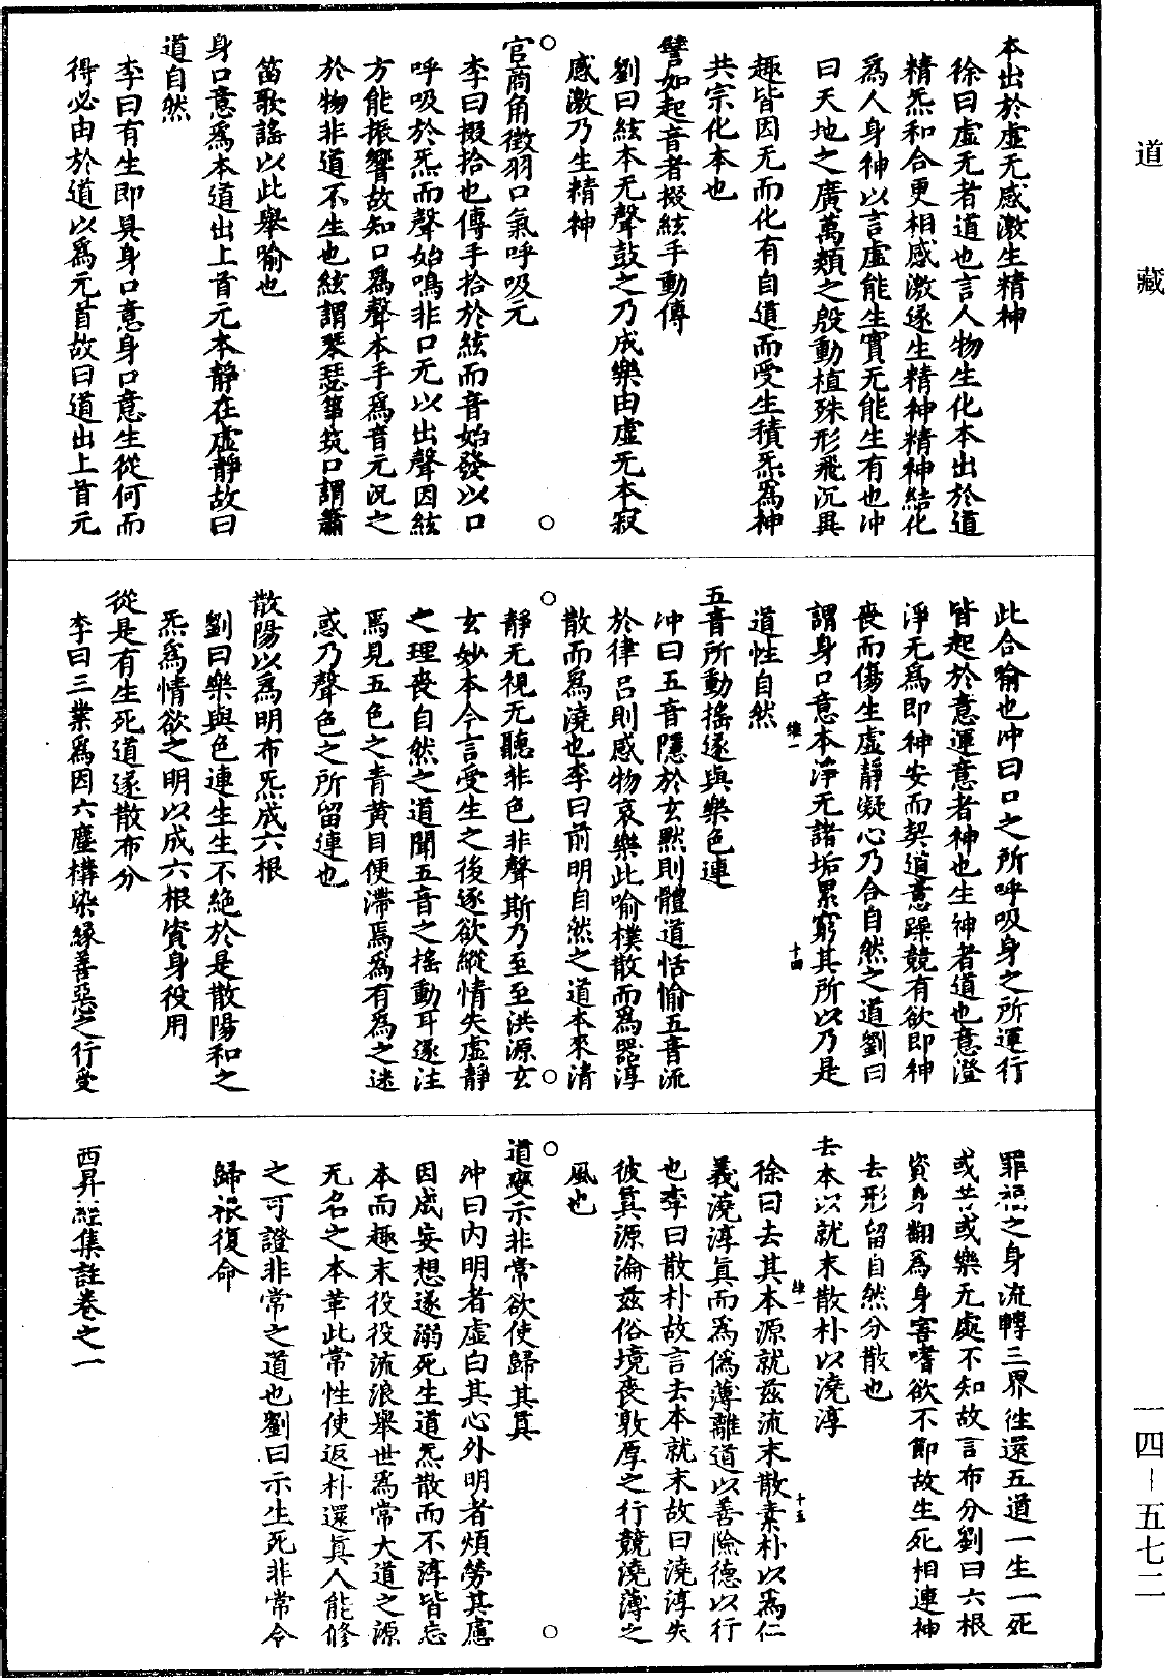 道藏
本出於虛无感激生精神
徐曰虛无者道也言人物生化本出於道
精炁和合更相感激遂生精神精神結化
爲人身神以言虛能生實无能生有也沖
曰天地之廣萬類之殷動植殊形飛沉異
趣皆因无而化有自道而受生積炁爲神
共宗化本也
譬如起音者掇絃手動傳
劉曰絃本无聲鼓之乃成樂由虛无本寂
感激乃生精神
官商角徵羽口氣呼吸元
李曰掇拾也傳手拾於絃而音始發以口
呼吸於炁而聲始鳴非口无以出聲因絃
方能振響故知口爲聲本手爲音元況之
於物非道不生也絃謂琴瑟箏筑口謂簫
笛歌謠以此舉喻也
身口意爲本道出上首元本靜在虛靜故曰
道自然
李曰有生即具身口意身口意生從何而
得必由於道以爲元首故曰道出上首元
此合喻也沖曰口之所呼吸身之所運行
皆起於意運意者神也生神者道也意澄
淨无爲即神安而契道意躁競有欲即神
喪而傷生虛靜凝心乃合自然之道劉曰
謂身口意本淨无諸垢累窮其所以乃是
道性自然
維一
十四
五音所動搖遂與樂色連
沖曰五音隱於玄默則體道恬愉五音流
於律呂則感物哀樂此喻樸散而爲器淳
散而爲澆也李曰前明自然之道本來清
靜无視无聽非色非聲斯乃至至洪源玄
玄妙本今言受生之後逐欲縱情失虛靜
之理喪自然之道聞五音之搖動耳遂注
焉見五色之青黃目便滯焉爲有爲之迷
惑乃聲色之所留連也
散陽以爲明布炁成六根
劉曰樂與色連生生不絕於是散陽和之
炁爲情欲之明以成六根資身役用
從是有生死道遂散布分
李曰三業爲因六塵構染緣善惡之行受
罪福之身流轉三界往還五道一生一死
或苦或樂无處不知故言布分劉曰六根
資身翻爲身害嗜欲不節故生死相連神
去形留自然分散也
去本以就末散朴以澆淳
徐曰去其本源就茲流末散素朴以爲仁
維一
十五
義澆淳真而爲僞薄離道以善險德以行
也李曰散朴故言去本就末故曰澆淳失
彼真源淪茲俗境喪敦厚之行競澆薄之
風也
道變示非常欲使歸其真
沖曰内明者虛白其心外明者煩勞其慮
因成妄想遂溺死生道炁散而不淳皆忘
本而趣末役役流浪舉世爲常大道之源
无名之本革此常性使返朴還真人能修
之可證非常之道也劉曰示生死非常令
歸根復命
西昇經集註卷之一
一四-五七二